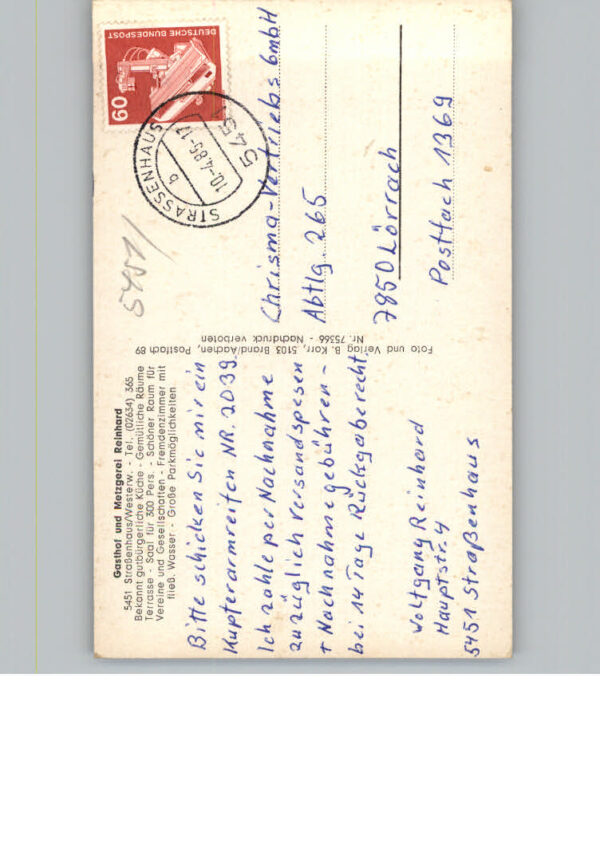 Gasthof und Metzgerei Reinhard
5451 Straßenhaus/Westerw. - Tel. (02634) 365
Bekannt gutbürgerliche Küche - Gemütliche Räume
Terrasse - Saal für 300 Pers. - Schöner Raum für
Vereine und Gesellschaften - Fremdenzimmer mit
fließ. Wasser - Große Parkmöglichkeiten
Bitte schicken Sie mir ein
Kupferarmreifen NR. 2039.
Ich zahle per Nachnahme
zuzüglich Versandspesen
+ Nachnahmegebühren -
bei 14 Tage Rückgaberecht.
Wolfgang Reinhard
Hauptstr. 4
5451 Straßenhaus
Foto und Verlag B. Karr, 5103 Brand/Aachen, Postfach 89
Nr. 75366 - Nachdruck verboten
5451/
DEUTSCHE BUNDESPOST
60
STRASSENHAUS
b
10.-4.85-17
5451
Chrisma-Vertriebs GmbH
Abtlg. 265
7850 Lörrach
Postfach 1369